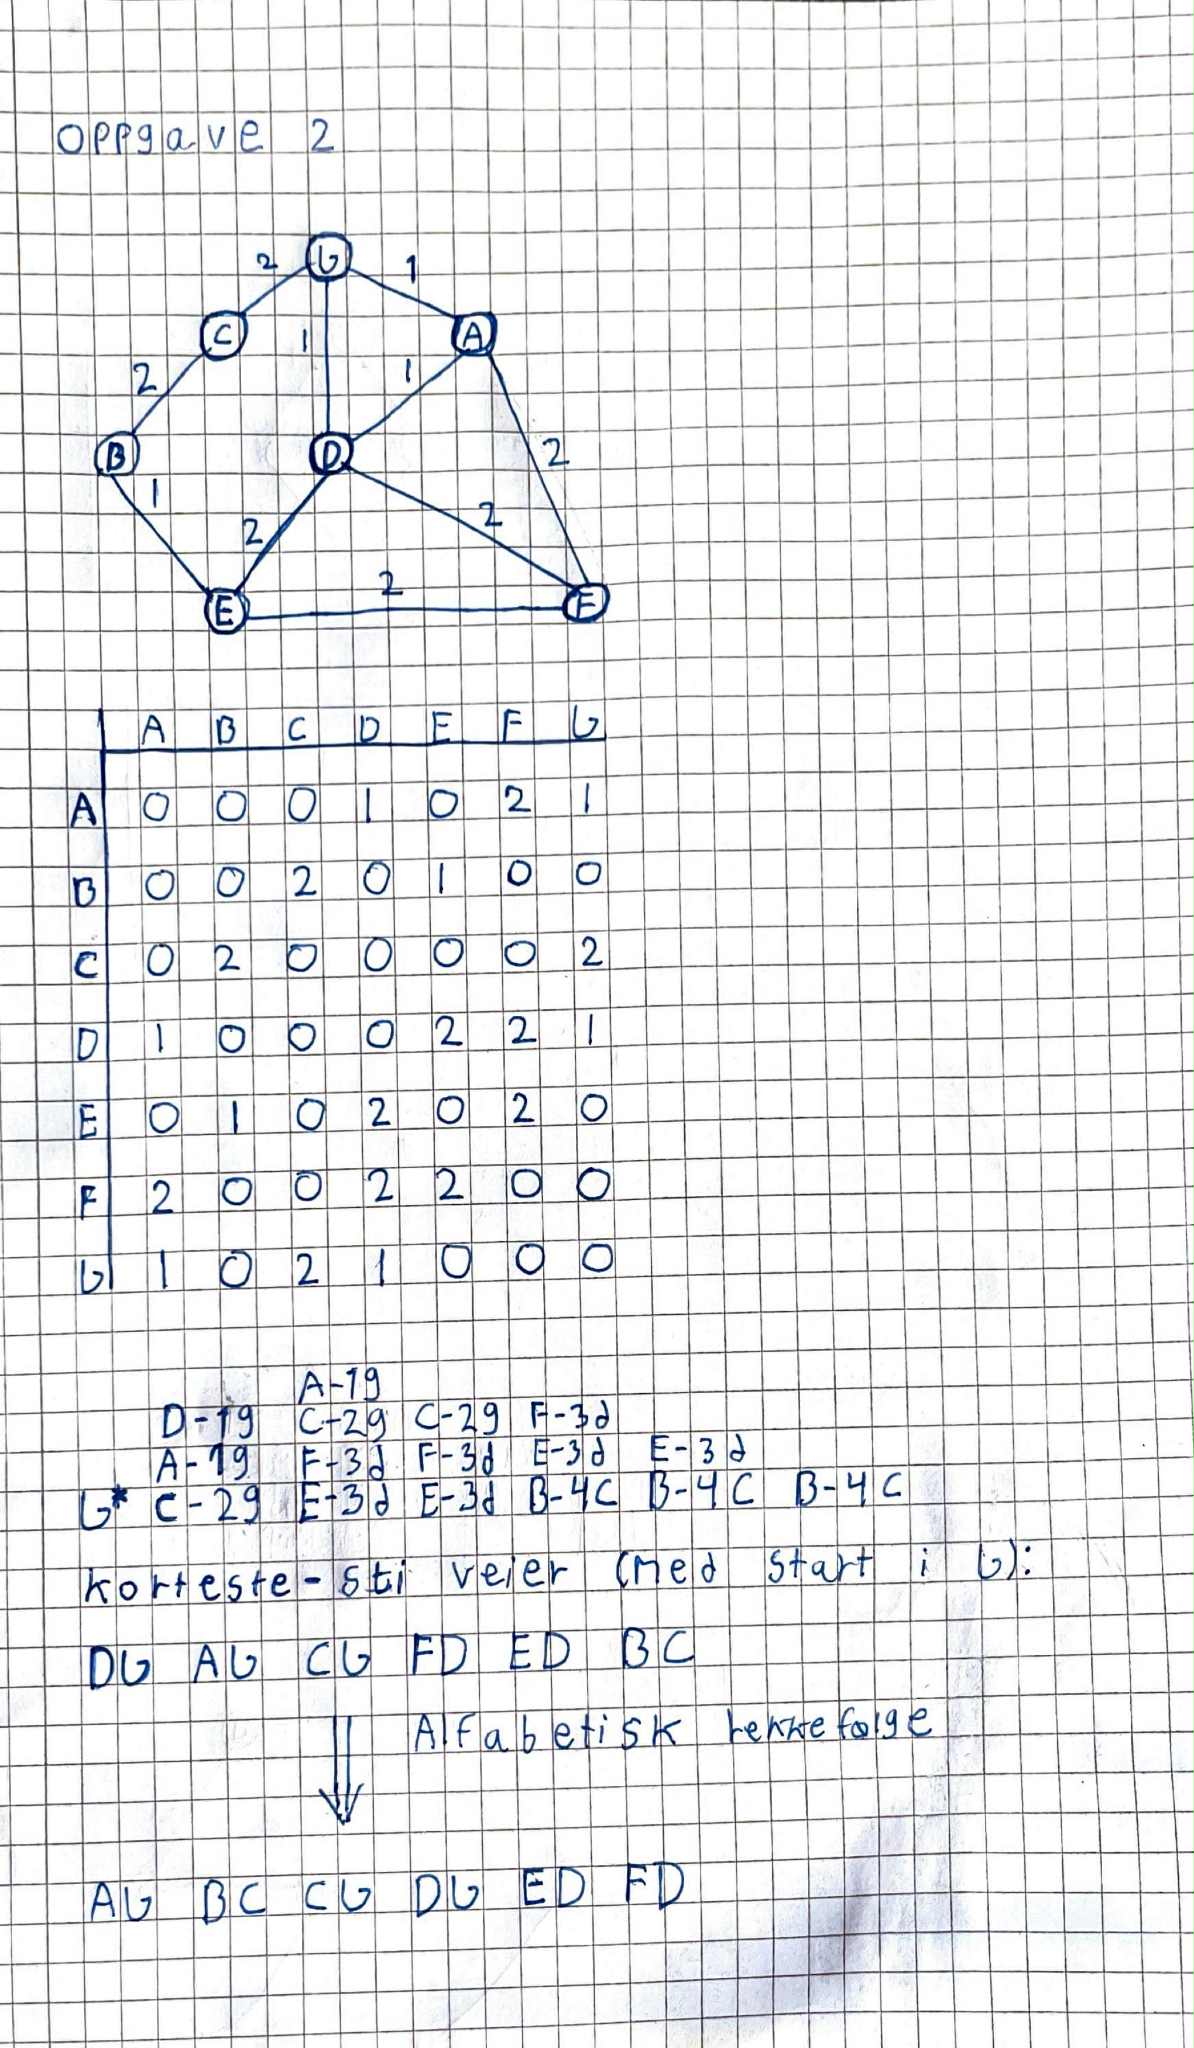 Oppgave 2
G
2 1
C A
1
2 1
B D 2
1
2 2
2
E F
A B C D E F G
A 0 0 0 1 0 2 1
B 0 0 2 0 1 0 0
C 0 2 0 0 0 0 2
D 1 0 0 0 2 2 1
E 0 1 0 2 0 2 0
F 2 0 0 2 2 0 0
G 1 0 2 1 0 0 0
A-1g
D-1g C-2g C-2g F-3d
A-1g F-3d F-3d E-3d E-3d
G* C-2g E-3d E-3d B-4C B-4C B-4C
korteste-sti veier (med start i G):
DG AG CG FD ED BC
Alfabetisk rekkefølge
AG BC CG DG ED FD